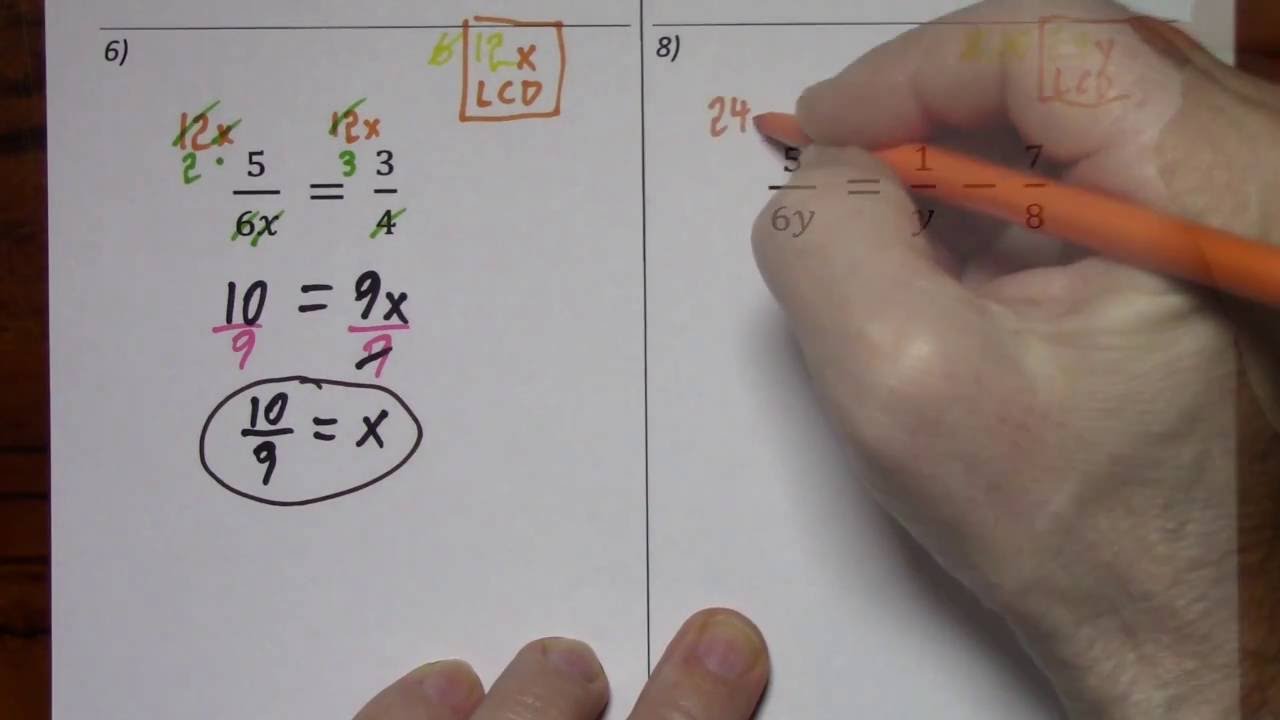 6)
6 12x
LCD
12x 12x
2 · 5/6x = 3 3/4
10/9 = 9x/9
10/9 = x
8)
24y
LCD
24
5/6y = 1/y − 7/8